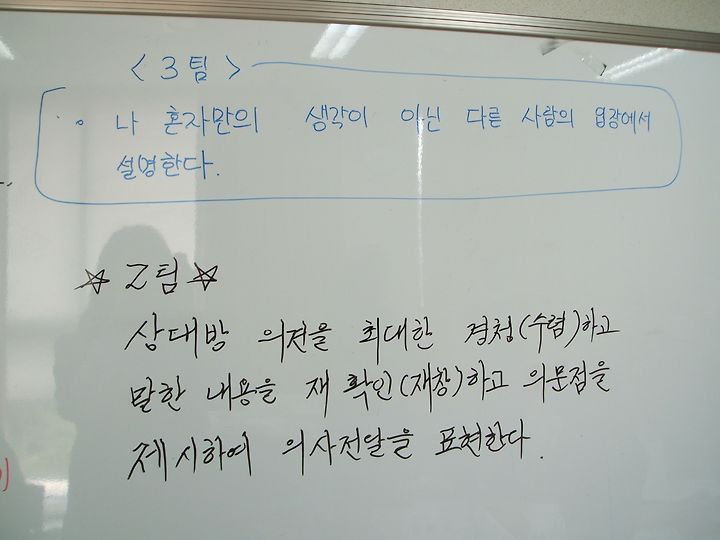 < 3 팀 >
◦ 나 혼자만의 생각이 아닌 다른 사람의 입장에서
설명한다.
☆ 2팀 ☆
상대방 의견을 최대한 경청(수렴)하고
말한 내용을 재 확인(재창)하고 의문점을
제시하여 의사전달을 표현한다.